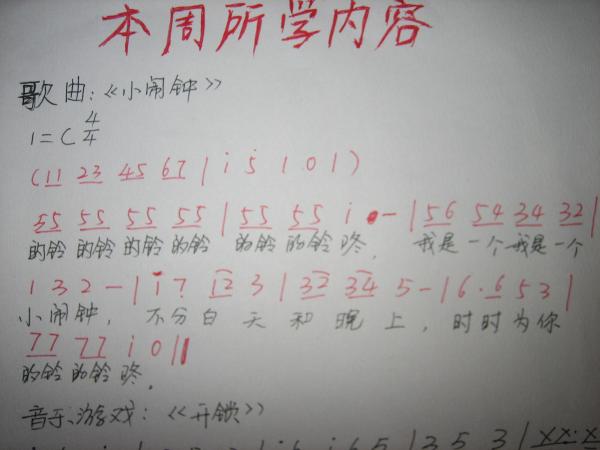 本周所学内容
歌曲:《小闹钟》
1=C 4/4
(11 23 45 67 | i 5 1 0 1 )
55 55 55 55 | 55 55 i - | 56 54 34 32 |
的铃 的铃 的铃 的铃 的铃 的铃 咚. 我是 一个 我是 一个
1 3 2 - | i 7 12 3 | 32 34 5 - | 6 · 6 5 3 |
小闹钟, 不分白天和晚上, 时时为你
77 77 i 0 ||
的铃 的铃 咚.
音乐游戏:《开锁》
| 3 5 3 | XX·X